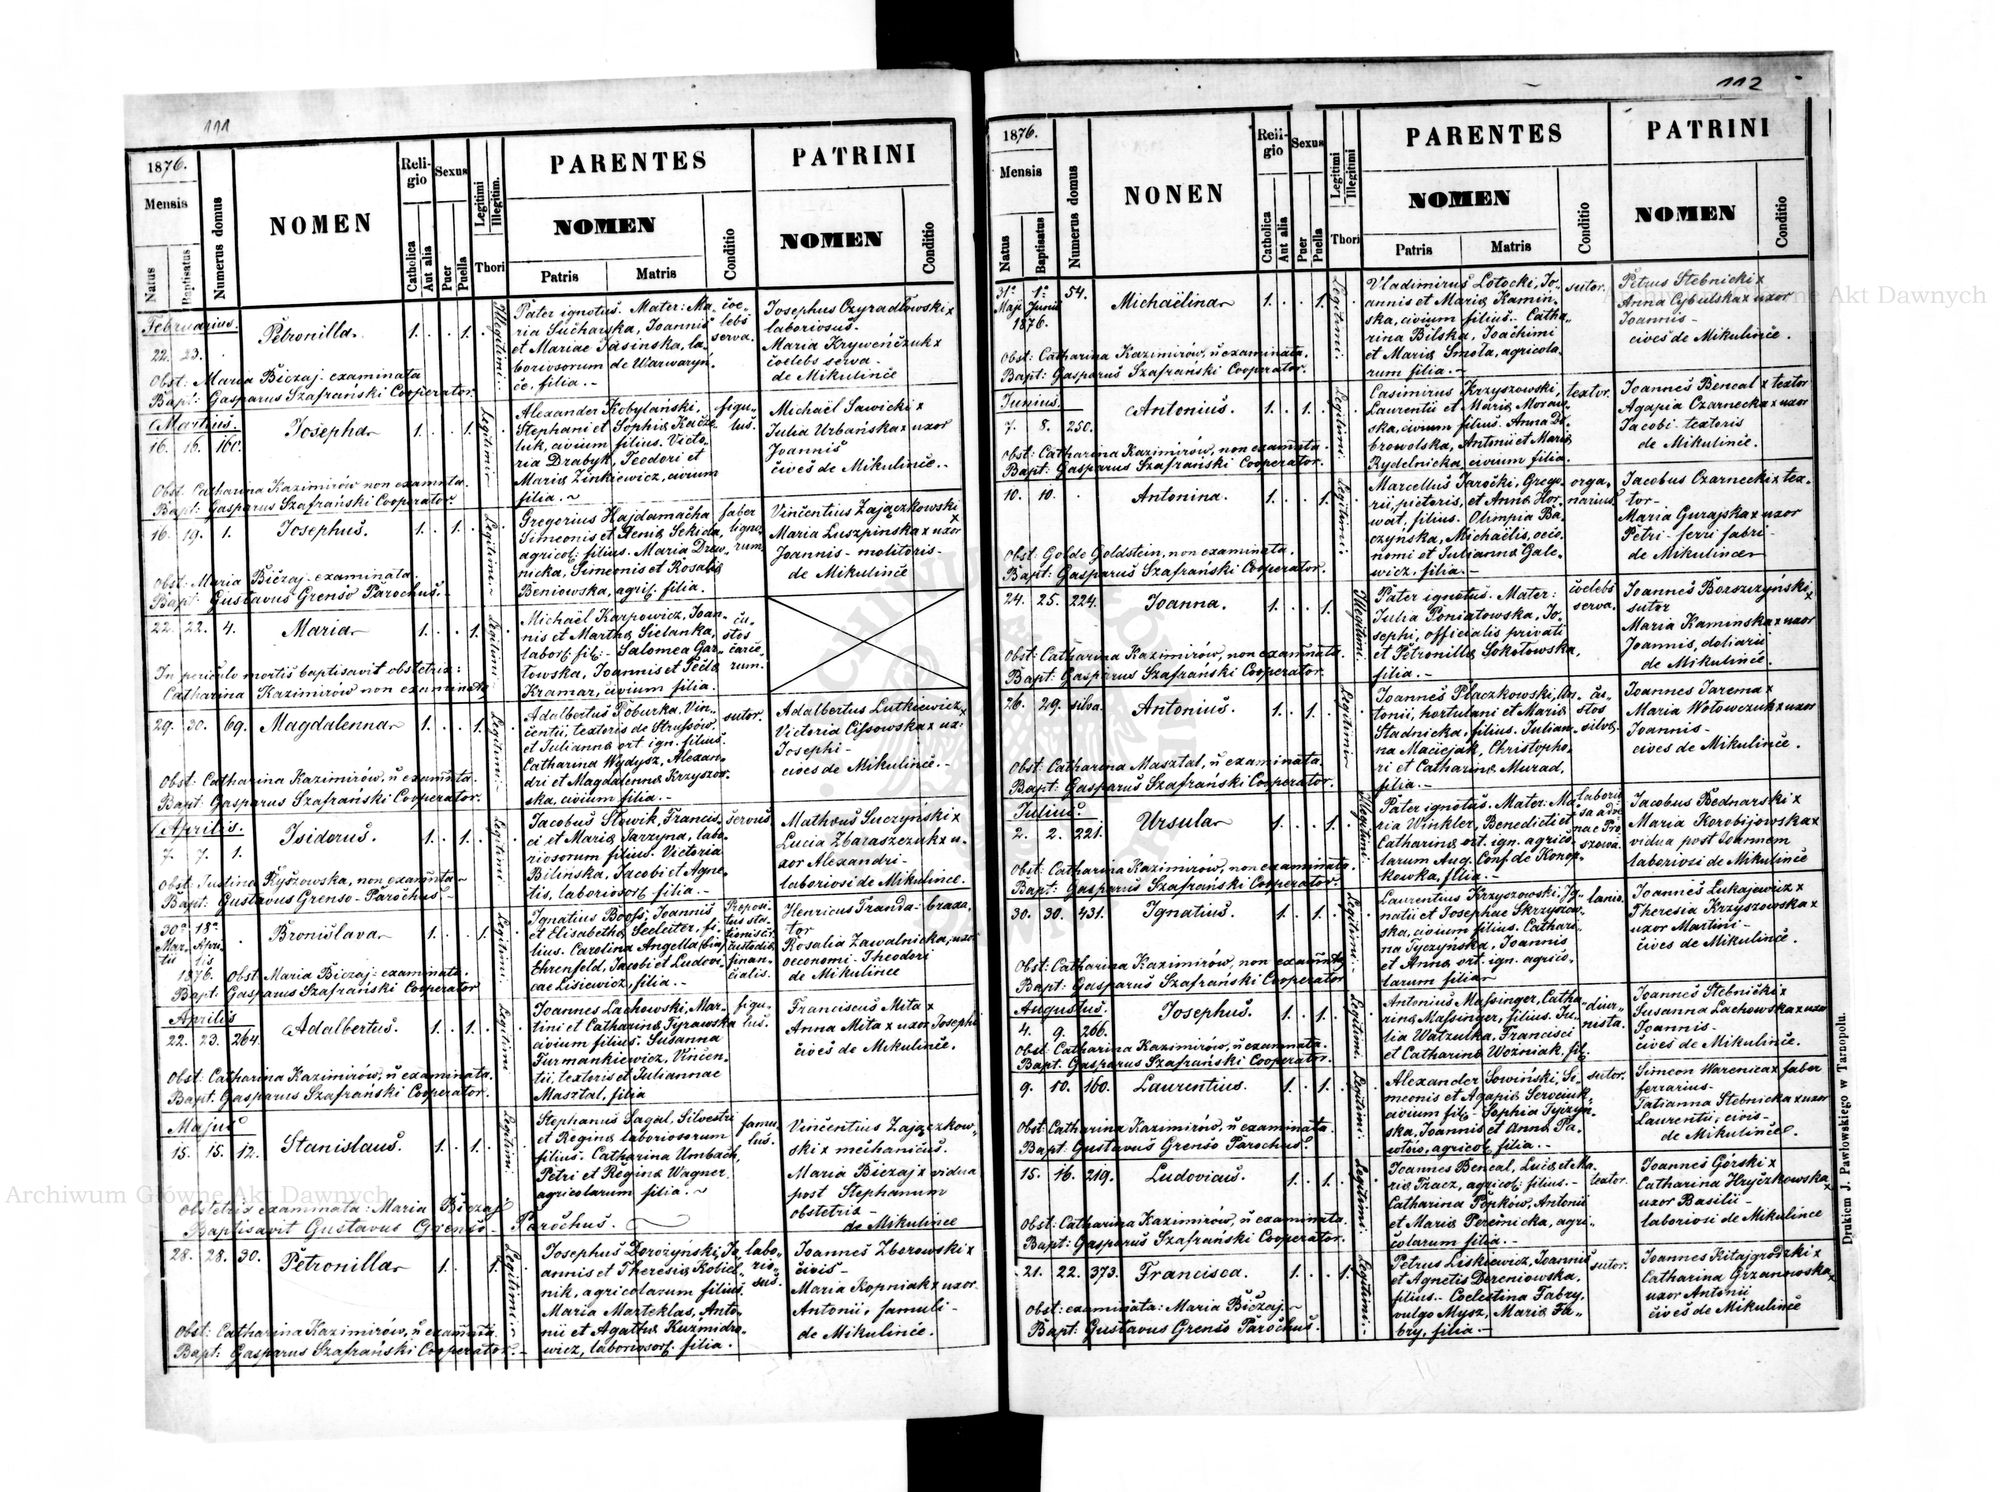 111
1876.
Mensis
Natus
Baptisatus
Numerus domus
NOMEN
Reli-
gio
Catholica
Aut alia
Sexus
Puer
Puella
Legitimi
Illegitim.
Thori
PARENTES
NOMEN
Patris
Matris
Conditio
PATRINI
NOMEN
Conditio
Februarius.
22. 23.
Petronilla.
1. 1.
Illegitimi
Pater ignotus. Mater: Ma-
ria Sucharska, Joannis
et Mariae Jasinska, la-
boriosorum de Warwaryń-
ce. filia. -
coe-
lebs
serva.
Josephus Czyradłowski x
laboriosus.
Maria Kryweńczuk x
coelebs serva.
de Mikulince
Obst: Maria Biczaj examinata
Bapt: Gasparus Szafrański Cooperator.
Martius.
16. 16. 160.
Josepha
1. 1.
Legitimi
Alexander Kobylański,
Stephani et Sophiae Kacza-
luk, civium filius. Victo-
ria Drabyk, Teodori et
Mariae Zinkiewicz, civium
filia. ~
figu-
lus.
Michaël Sawicki x
Julia Urbańska x uxor
Joannis
cives de Mikulince..
Obst. Catharina Kazimirów non examnta.
Bapt: Gasparus Szafrański Cooperator.
16. 19. 1.
Josephus.
1. 1.
Legitimi
Gregorius Hajdamacha
Simeonis et Xeniae Sekida,
agricol: filius. Maria Drew-
nicka, Simeonis et Rosaliae
Beniowska, agric: filia.
faber
ligna-
rum.
Vincentius Zajączkowski x
Maria Luszpinska x uxor
Joannis - molitoris -
de Mikulince
Obst: Maria Biczaj examinata.
Bapt: Gustavus Grenso Parochus. -
22. 22. 4.
Maria
1. 1.
Legitimi
Michaël Karpowicz, Joan-
nis et Marthae Sielanka,
labors: fil: - Salomea Gar-
towska, Joannis et Teclae
Kramar, civium filia.
cu-
stos
carce-
rum.
In periculo mortis baptisavit obstetrix:
Catharina Kazimirów non examinata
29. 30. 69.
Magdalenna
1. 1.
Legitimi
Adalbertus Poburka, Vin-
centii, textoris de Strussów
et Juliannae ort. ign. filius.
Catharina Wydysz, Alexan-
dri et Magdalenae Krzyszow-
ska, civium filia. -
sutor.
Adalbertus Lutkiewicz x
Victoria Cissowska x ux:
Josephi -
cives de Mikulince. -
Obst: Catharina Kazimirów, n examnta.
Bapt: Gasparus Szafrański Cooperator.
Aprilis.
7. 7. 1.
Isidorus.
1. 1.
Legitimi
Jacobus Słowik, Francis-
ci et Mariae Jarzyna, labo-
riosorum filius. Victoria
Bilińska, Jacobi et Agne-
tis, laboriosor: filia. -
servus
Mathaeus Suczyński x
Lucia Zbaraszczuk x u-
xor Alexandri -
laboriosi de Mikulince.
Obst: Justina Kyszowska, non examnta ~
Bapt: Gustavus Grenso - Parochus. -
30ª 18ª
Mar- Apri-
tii lis
1876.
Bronislava
1. 1.
Legitimi
Ignatius Booss; Joannis
et Elisabethae Seeleiter, fi-
lius. Carolina Angella (bin)
Ehrenfeld, Jacobi et Ludovi-
cae Lisiewicz, filia. -
finan-
cialis.
Henricus Franda - braxa-
tor
Rosalia Zawalnicka, uxor
oeconomi - Theodori
de Mikulince
Obst Maria Biczaj - examinata.
Bapt: Gasparus Szafrański Cooperator
Aprilis
22. 23. 264.
Adalbertus.
1. 1.
Legitimi
Joannes Lachowski, Mar-
tini et Catharinae Tyrawska
civium filius. Susanna
Furmankiewicz, Vincen-
tii, textoris et Juliannae
Masztal, filia
figu-
lus.
Franciscus Mita x
Anna Mita x uxor Josephi
cives de Mikulince.
Obst: Catharina Kazimirów, n examinata.
Bapt: Gasparus Szafrański Cooperator.
Majus
15. 15. 12.
Stanislaus.
1. 1.
Legitimi
Stephanus Sagal, Silvestri
et Reginae laboriosorum
filius. Catharina Umbach,
Petri et Reginae Wagner
agricolarum filia. ~
famu-
lus.
Vincentius Zajączkow-
ski x mechanicus.
Maria Biczaj x vidua
post Stephanum
obstetrix -
de Mikulince
Obstetrix examinata: Maria Biczaj
Baptisavit Gustavus Grenso - Parochus.
28. 28. 30.
Petronilla
1. 1.
Legitimi
Josephus Dorożyński, Jo-
annis et Theresiae Kobiel-
nik, agricolarum filius.
Maria Marteklas, Anto-
nii et Agathae Kuzmidro-
wicz, laboriosor: filia.
labo-
rio-
sus.
Joannes Zborowski x
civis -
Maria Kopniak x uxor
Antonii, famuli -
de Mikulince.
Obst: Catharina Kazimirów, n examnta.
Bapt: Gasparus Szafrański Cooperator. -
112
1876.
Mensis
Natus
Baptisatus
Numerus domus
NONEN
Reli-
gio
Catholica
Aut alia
Sexus
Puer
Puella
Legitimi
Illegitimi
Thori
PARENTES
NOMEN
Patris
Matris
Conditio
PATRINI
NOMEN
Conditio
31ª 1ª 54.
Maji Junii
1876.
Michaëlina
1. 1.
Legitimi
Vladimirus Łotocki, Jo-
annis et Mariae Kamin-
ska, civium filius. Catha-
rina Bilska, Joachimi
et Mariae Smoła, agricola-
rum filia. -
sutor.
Petrus Stebnicki x
Anna Cybulska x uxor
Joannis -
cives de Mikulince.
Obst: Catharina Kazimirów, n examinata.
Bapt: Gasparus Szafrański Cooperator.
Junius.
7. 8. 250.
Antonius.
1. 1.
Legitimi
Casimirus Krzyszowski,
Laurentii et Mariae Moraw-
ska, civium filius. Anna Do-
browolska, Antonii et Mariae
Rydelnicka, civium filia.
textor.
Joannes Bencal x textor
Agapia Czarnecka x uxor
Jacobi - textoris
de Mikulince.
Obst: Catharina Kazimirów, non examnta.
Bapt: Gasparus Szafrański Cooperator.
10. 10.
Antonina.
1. 1.
Legitimi
Marcellus Jarocki, Grego-
rii, pictoris, et Annae Hor-
wat, filius. Olimpia Ba-
czyńska, Michaëlis, oeco-
nomi et Juliannae Gale-
wicz. filia. -
orga-
narius
Jacobus Czarnecki x tex-
tor -
Maria Gurajska x uxor
Petri - ferri fabri -
de Mikulince
Obst: Golde Goldstein, non examinata.
Bapt: Gasparus Szafrański Cooperator.
24. 25. 224.
Joanna.
1. 1.
Illegitimi
Pater ignotus. Mater:
Julia Poniatowska, Jo-
sephi, officialis privati
et Petronillae Sokołowska,
filia. -
coelebs
serva.
Joannes Borszczyński x
sutor
Maria Kaminska x uxor
Joannis, doliarii
de Mikulince.
Obst: Catharina Kazimirów, non examnta.
Bapt: Gasparus Szafrański Cooperator
26. 29. silva.
Antonius.
1. 1.
Legitimi
Joannes Płaczkowski, An-
tonii, hortulani et Mariae
Stadnicka, filius. Julian-
na Maciejak, Christopho-
ri et Catharinae Murad,
filia. -
cu-
stos
silvae.
Joannes Jarema x
Maria Wołowczuk x uxor
Joannis -
cives de Mikulince.
Obst: Catharina Masztal, n examinata.
Bapt: Gasparus Szafrański Cooperator.
Julius.
2. 2. 221.
Ursula
1. 1.
Illegitimi
Pater ignotus. Mater: Ma-
ria Winkler, Benedicti et
Catharinae ort. ign. agrico-
larum Aug. Conf. de Konop-
kowka, filia. -
Jacobus Bednarski x
Maria Korobijowska x
vidua post Joannem
laboriosi de Mikulince
Obst: Catharina Kazimirów, non examnta.
Bapt: Gasparus Szafrański Cooperator.
30. 30. 431.
Ignatius.
1. 1.
Legitimi
Laurentius Krzyszowski, Ig-
natii et Josephae Skrzyszow-
ska, civium filius. Cathari-
na Tyczyńska, Joannis
et Annae ort. ign. agrico-
larum filia
lanio.
Joannes Lukajewicz x
Theresia Krzyszowska x
uxor Martini -
cives de Mikulince.
Obst: Catharina Kazimirów, non examnta
Bapt: Gasparus Szafrański Cooperator
Augustus.
4. 9. 266.
Josephus.
1. 1.
Legitimi
Antonius Massinger, Catha-
rinae Massinger, filius. Ju-
lia Watzulka, Francisci
et Catharinae Wozniak. fil:
diur-
nista.
Joannes Stebnicki x
Susanna Lachowska x uxor
Joannis -
cives de Mikulince.
Obst: Catharina Kazimirów, n examnta.
Bapt: Gasparus Szafrański Cooperator.
9. 10. 160.
Laurentius.
1. 1.
Legitimi
Alexander Sowiński, Si-
meonis et Agapiae Serweniuk
civium fil: - Sophia Tyczyń-
ska, Joannis et Annae Pa-
agricol: filia. -
sutor.
Simeon Warenica x faber
ferrarius -
Tatianna Stebnicka x uxor
Laurentii, civis -
de Mikulince.
Obst: Catharina Kazimirów, n examinata.
Bapt: Gustavus Grenso Parochus.
15. 16. 219.
Ludovicus.
1. 1.
Legitimi
Joannes Bencal, Lucae et Ma-
riae Tracz, agricol: filius. -
Catharina Popków, Antonii
et Mariae Peremicka, agri-
colarum filia. -
textor.
Joannes Górski x
Catharina Hryczkowska x
uxor Basilii -
laboriosi de Mikulince
Obst: Catharina Kazimirów, n examinata.
Bapt: Gasparus Szafrański Cooperator.
21. 22. 373.
Francisca.
1. 1.
Legitimi
Petrus Liskiewicz, Joannis
et Agnetis Dereniowska,
filius. - Coelestina Fabry,
vulgo Mysz, Mariae Fa-
bry, filia -
sutor.
Joannes Kitajgrodzki x
Catharina Grzanowska x
uxor Antonii
cives de Mikulince
Obst: examinata: Maria Biczaj ~
Bapt: Gustavus Grenso Parochus.
Drukiem J. Pawłowskiego w Tarnopolu.
Archiwum Główne Akt Dawnych
Archiwum Główne Akt Dawnych